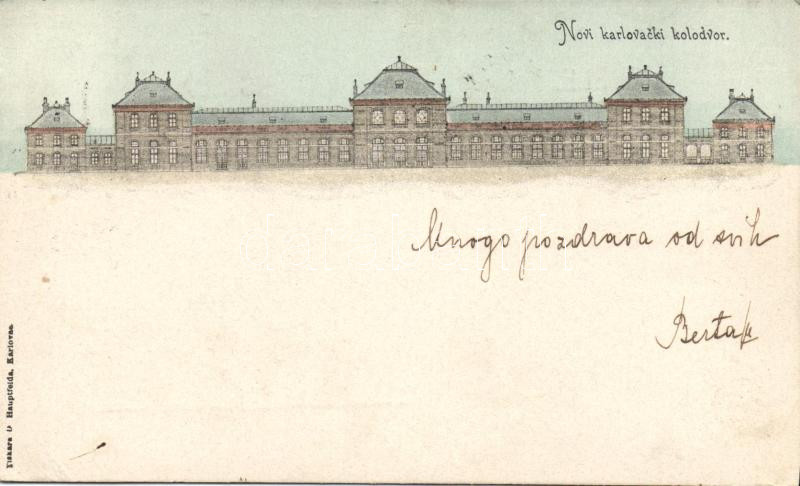 Novi karlovački kolodvor.
Mnogo pozdrava od svih
Berta
Tiskara D Hauptfelda, Karlovac